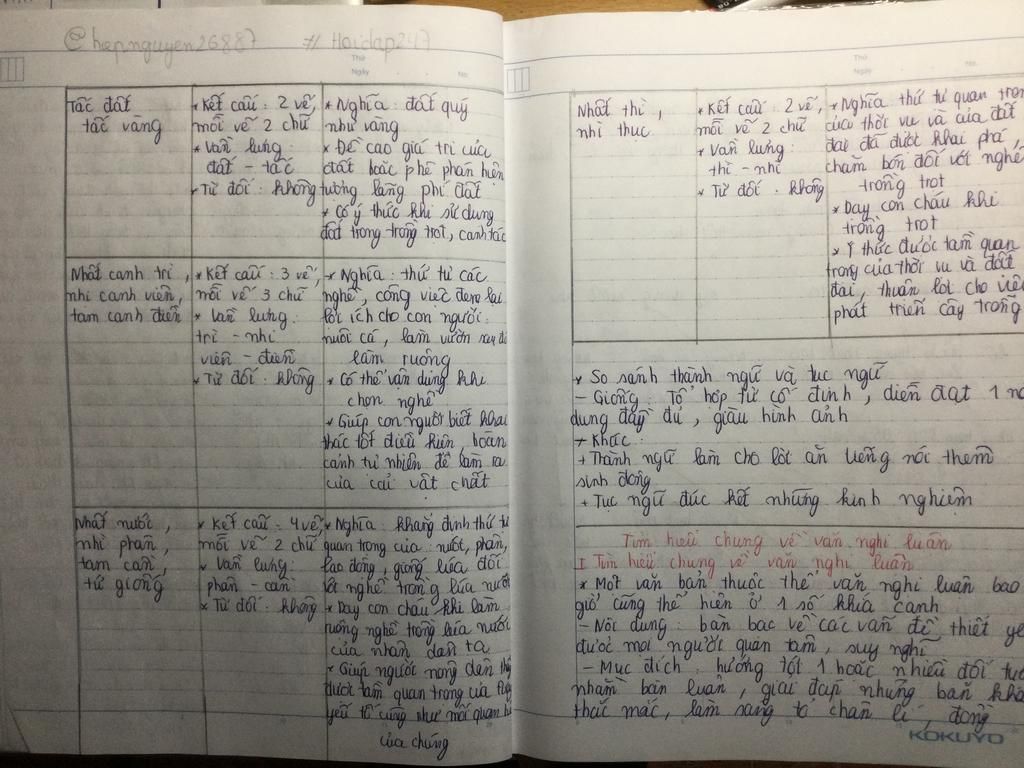 @hiepnguyen26887 # Hoidap247
Thứ
Ngày No.
Tấc đất
tấc vàng
* Kết cấu : 2 vế,
mỗi vế 2 chữ
* Vần lưng :
đất - tấc
* Từ đối : không
* Nghĩa : đất quý
như vàng
* Đề cao giá trị của
đất hoặc phê phán hiện
tượng lãng phí đất
* Có ý thức khi sử dụng
đất trong trồng trọt, canh tác
Nhất canh trì,
nhị canh viên,
tam canh điền
* Kết cấu : 3 vế,
mỗi vế 3 chữ
* Vần lưng :
trì - nhị
viên - điền
* Từ đối : không
* Nghĩa : thứ tự các
nghề, công việc đem lại
lợi ích cho con người :
nuôi cá, làm vườn sau đó
làm ruộng
* Có thể vận dụng khi
chọn nghề
* Giúp con người biết khai
thác tốt điều kiện, hoàn
cảnh tự nhiên để làm ra
của cải vật chất
Nhất nước,
nhì phân,
tam cần,
tứ giống
* Kết cấu : 4 vế,
mỗi vế 2 chữ
* Vần lưng :
phân - cần
* Từ đối : không
* Nghĩa : khẳng định thứ tự
quan trọng của : nước, phân,
lao động, giống lúa đối
với nghề trồng lúa nước
* Dạy con cháu khi làm
ruộng nghề trồng lúa nước
của nhân dân ta
* Giúp người nông dân thấy
được tầm quan trọng của từng
yếu tố cũng như mối quan hệ
của chúng
Thứ
Ngày No.
Nhất thì,
nhì thục
* Kết cấu : 2 vế,
mỗi vế 2 chữ
* Vần lưng :
thì - nhì
* Từ đối : không
* Nghĩa : thứ tự quan trọn
của thời vụ và của đất
đai đã được khai phá,
chăm bón đối với nghề
trồng trọt
* Dạy con cháu khi
trồng trọt
* Ý thức được tầm quan
trọng của thời vụ và đất
đai, thuận lợi cho việ
phát triển cây trồng
* So sánh thành ngữ và tục ngữ
- Giống : Tổ hợp từ cố định, diễn đạt 1 nộ
dung đầy đủ, giàu hình ảnh
- Khác :
+ Thành ngữ làm cho lời ăn tiếng nói thêm
sinh động
+ Tục ngữ đúc kết những kinh nghiệm
Tìm hiểu chung về văn nghị luận
I Tìm hiểu chung về văn nghị luận
* Một văn bản thuộc thể văn nghị luận bao
giờ cũng thể hiện ở 1 số khía cạnh
- Nội dung : bàn bạc về các vấn đề thiết yế
được mọi người quan tâm, suy nghĩ
- Mục đích : hướng tới 1 hoặc nhiều đối tượ
nhằm bàn luận, giải đáp những băn khoă
thắc mắc, làm sáng tỏ chân lí, đồng
KOKUYO